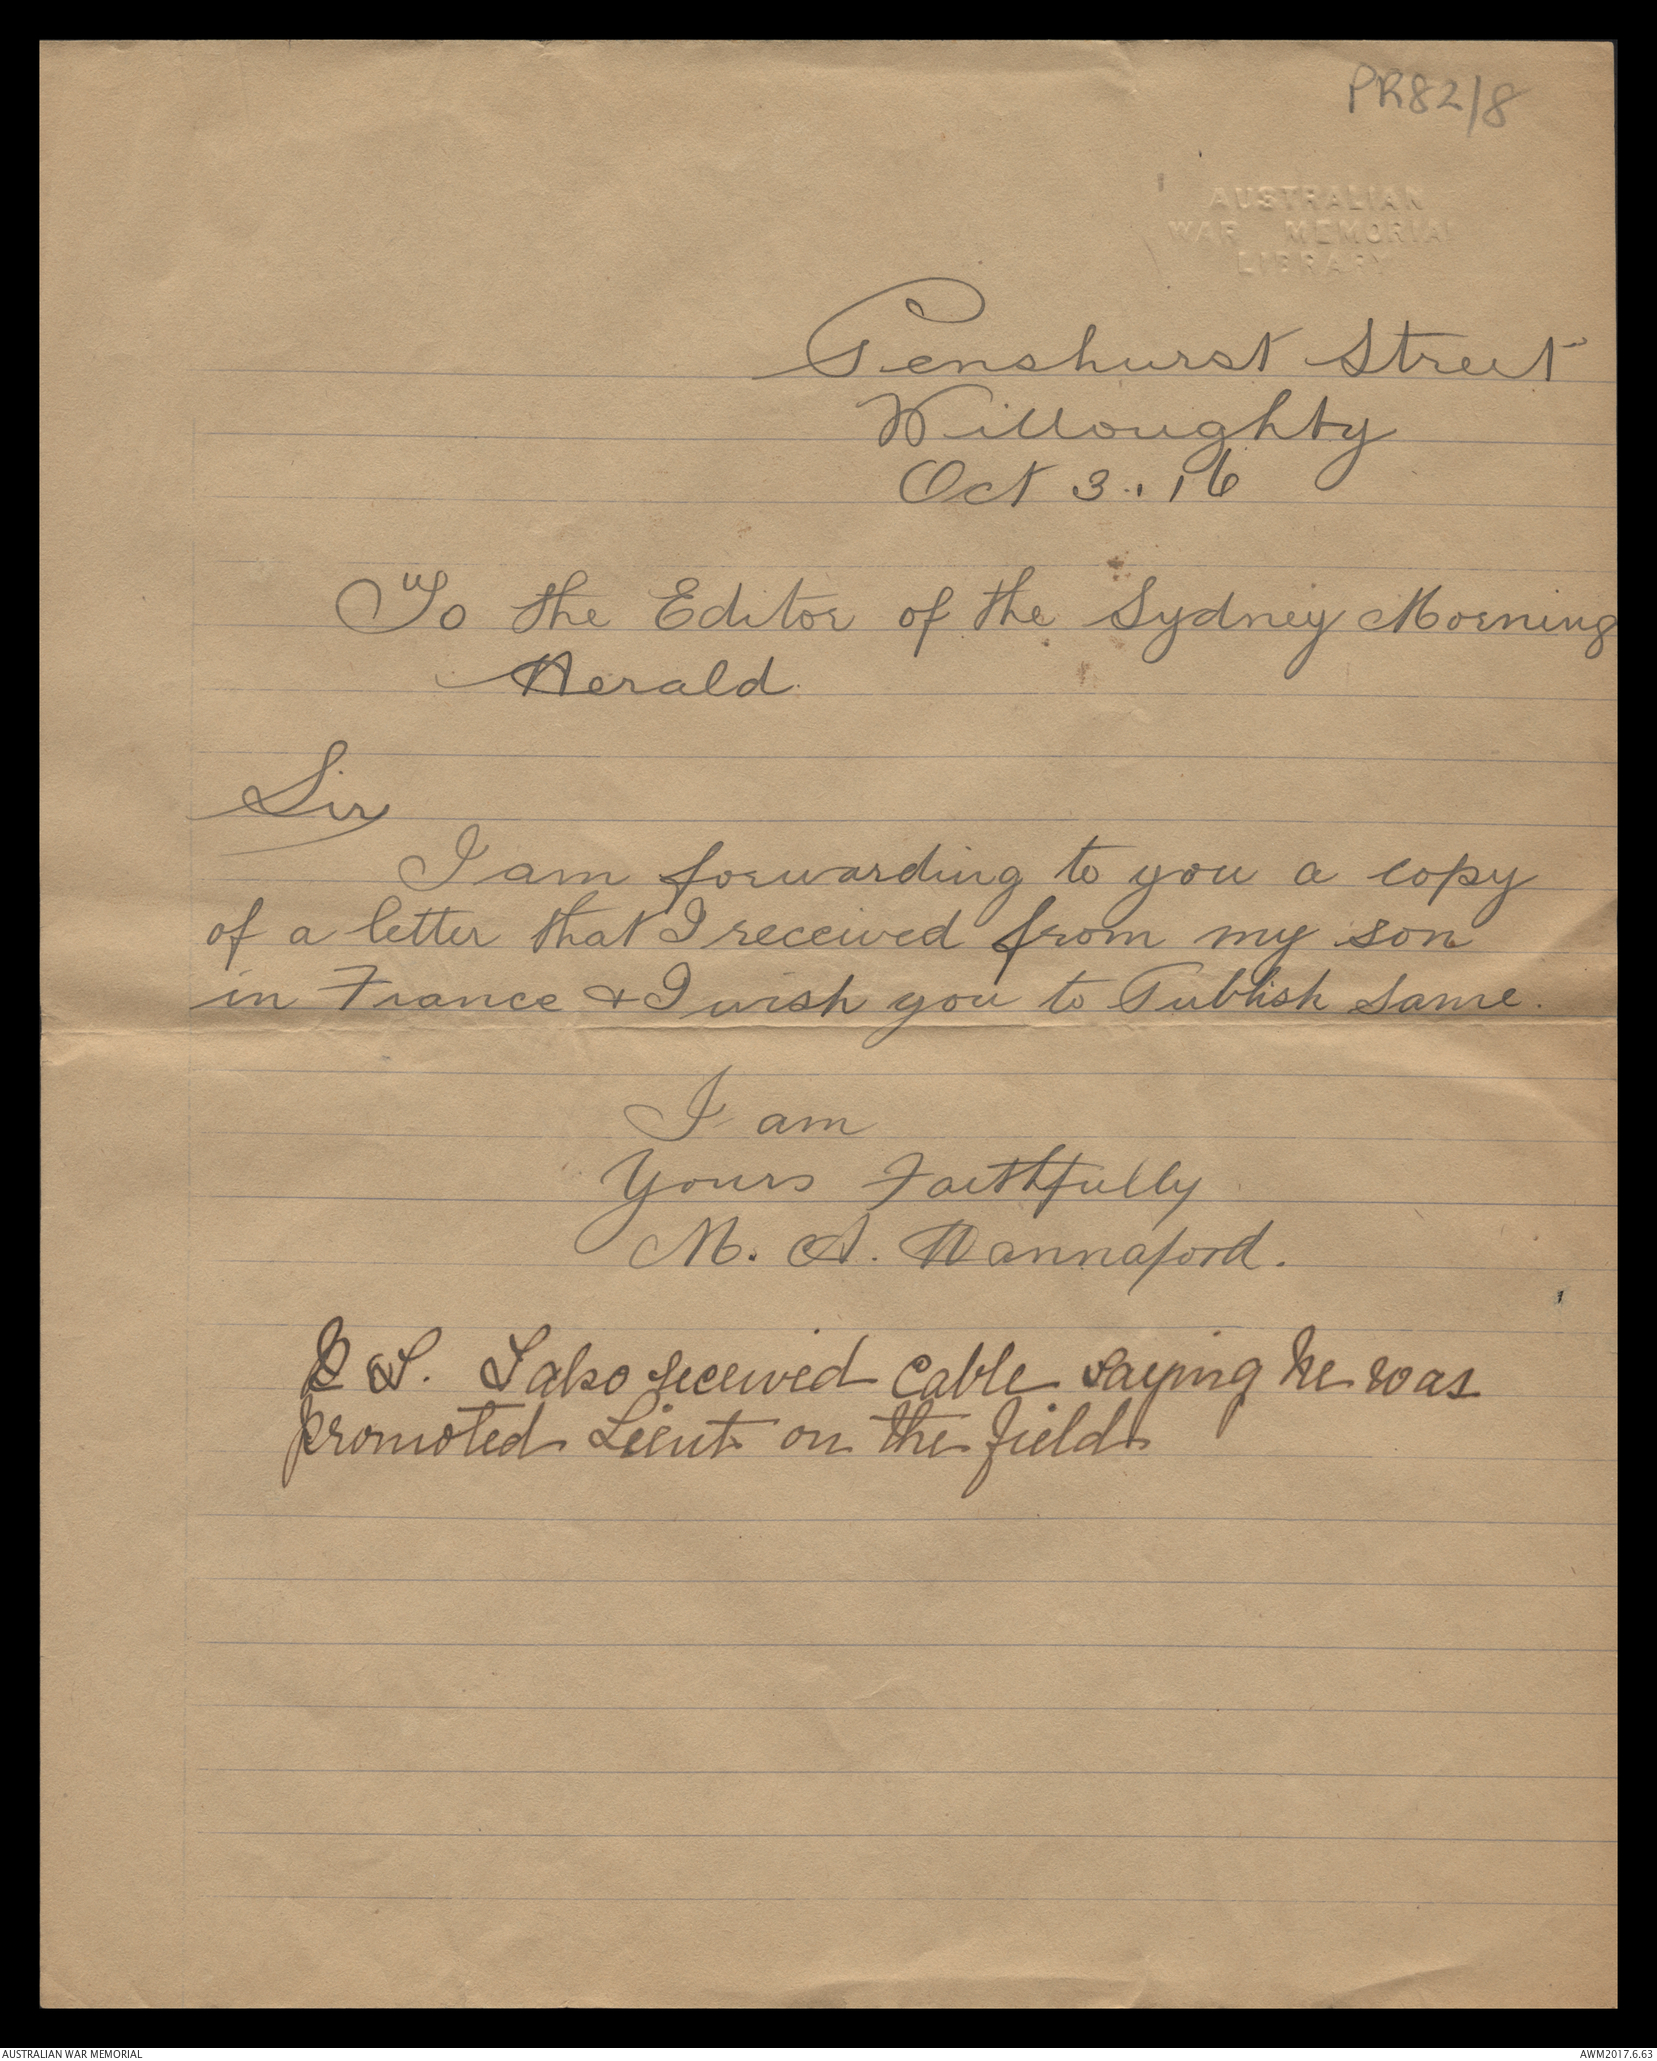 PR82/8
AUSTRALIAN
WAR MEMORIAL
LIBRARY
Penshurst Street
Willoughby
Oct 3..16
To the Editor of the Sydney Morning
Herald.
Sir
I am forwarding to you a copy
of a letter that I received from my son
in France & I wish you to Publish same.
I am
Yours Faithfully
M. A. Hannaford.
P.S. I also received cable saying he was
promoted Lieut on the field
AUSTRALIAN WAR MEMORIAL
AWM2017.6.63